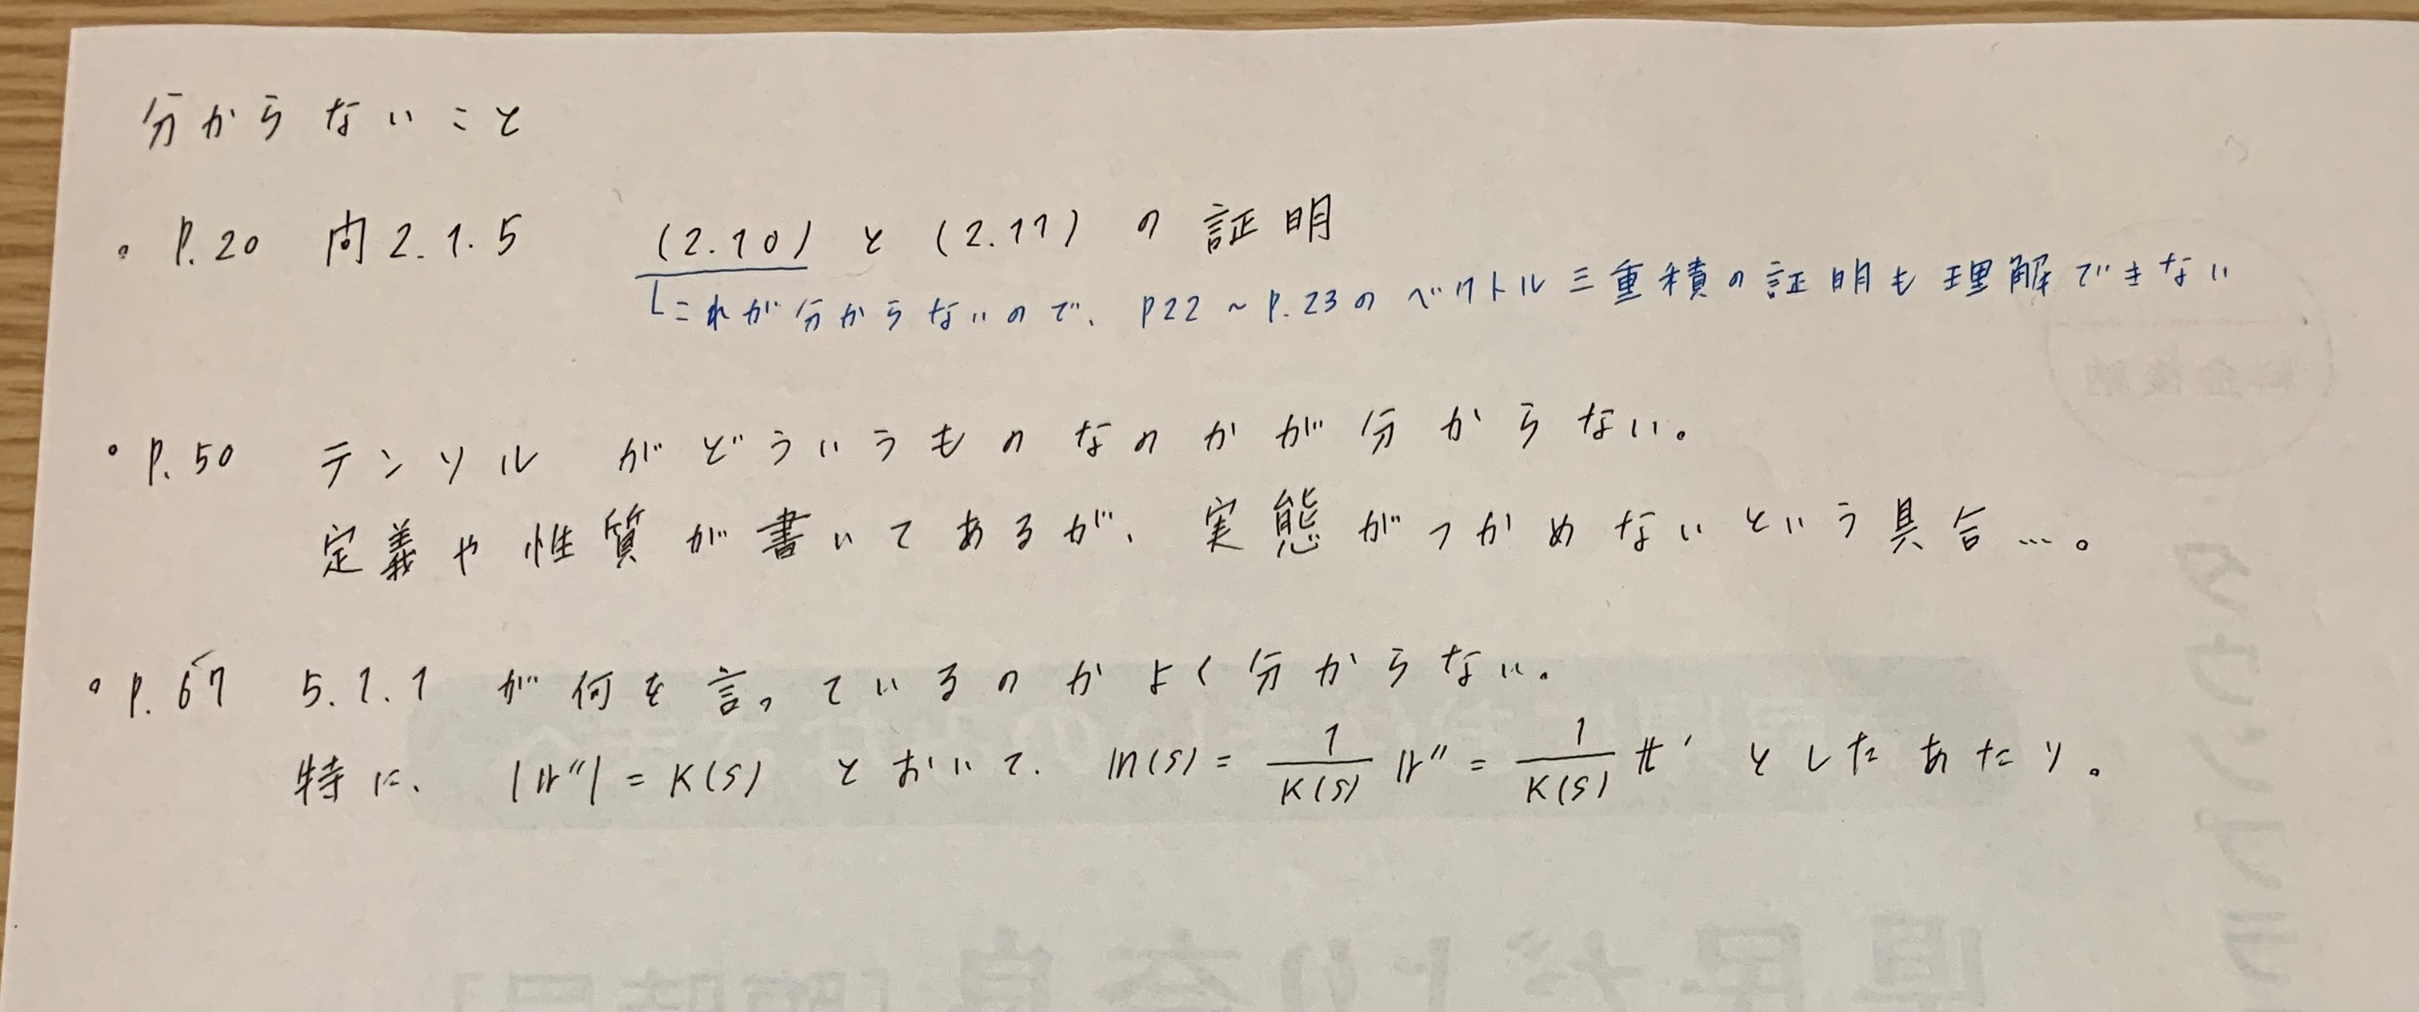 分からないこと
・P.20 問2.1.5 (2.10)と(2.11)の証明
これが分からないので、P22～P.23のベクトル三重積の証明も理解できない
・P.50 テンソルがどういうものなのかが分からない。
定義や性質が書いてあるが、実態がつかめないという具合…。
・P.67 5.1.1が何を言っているのかよく分からない。
特に、|𝕣''| = K(S) とおいて、𝕟(S) = 1/K(S) 𝕣'' = 1/K(S) 𝕥' としたあたり。
料金後納
タウンプラ